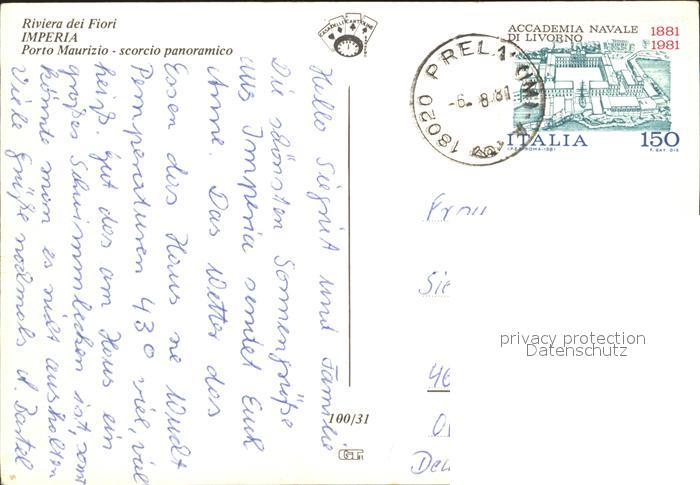 Riviera dei Fiori
IMPERIA
Porto Maurizio - scorcio panoramico
CASA DELLE CARTOLINE
ACCADEMIA NAVALE
DI LIVORNO
1881
1981
ITALIA 150
I.P.Z.S. ROMA-1981
18020 PREL
-6. 8.81
Hallo Siegrit und Familie
Die schönsten Sonnengrüße
aus Imperia sendet Euch
Anne. Das Wetter das
Essen das Haus ne Wucht
Temperaturen 430 viel, viel
heiß. Gut das am Haus ein
großes Schwimmbecken ist, sonst
könnte man es nicht aushalten
Viele Grüße nochmals A. Bartel
Frau
Sie
46
De
100/31
privacy protection
Datenschutz